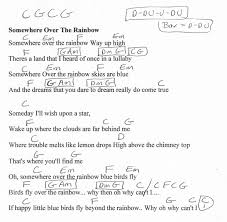 C G C G
D-DU-U-DU
Bar = D-DU
Somewhere Over The Rainbow
C Em F C
Somewhere over the rainbow Way up high
F G Am Dm G C G
Theres a land that I heard of once in a lullaby
C Em F C
Somewhere Over the rainbow skies are blue
F G Am Dm G F
And the dreams that you dare to dream really do come true
C
Someday I'll wish upon a star,
G F
Wake up where the clouds are far behind me
C
Where trouble melts like lemon drops High above the chimney top
G G
That's where you'll find me
C Em F C
Oh, somewhere over the rainbow blue birds fly
F G Am Dm G C / C F C G
Birds fly over the rainbow... why then oh why can't I....
C F C G C (C)
If happy little blue birds fly beyond the rainbow.. Why oh why can't I